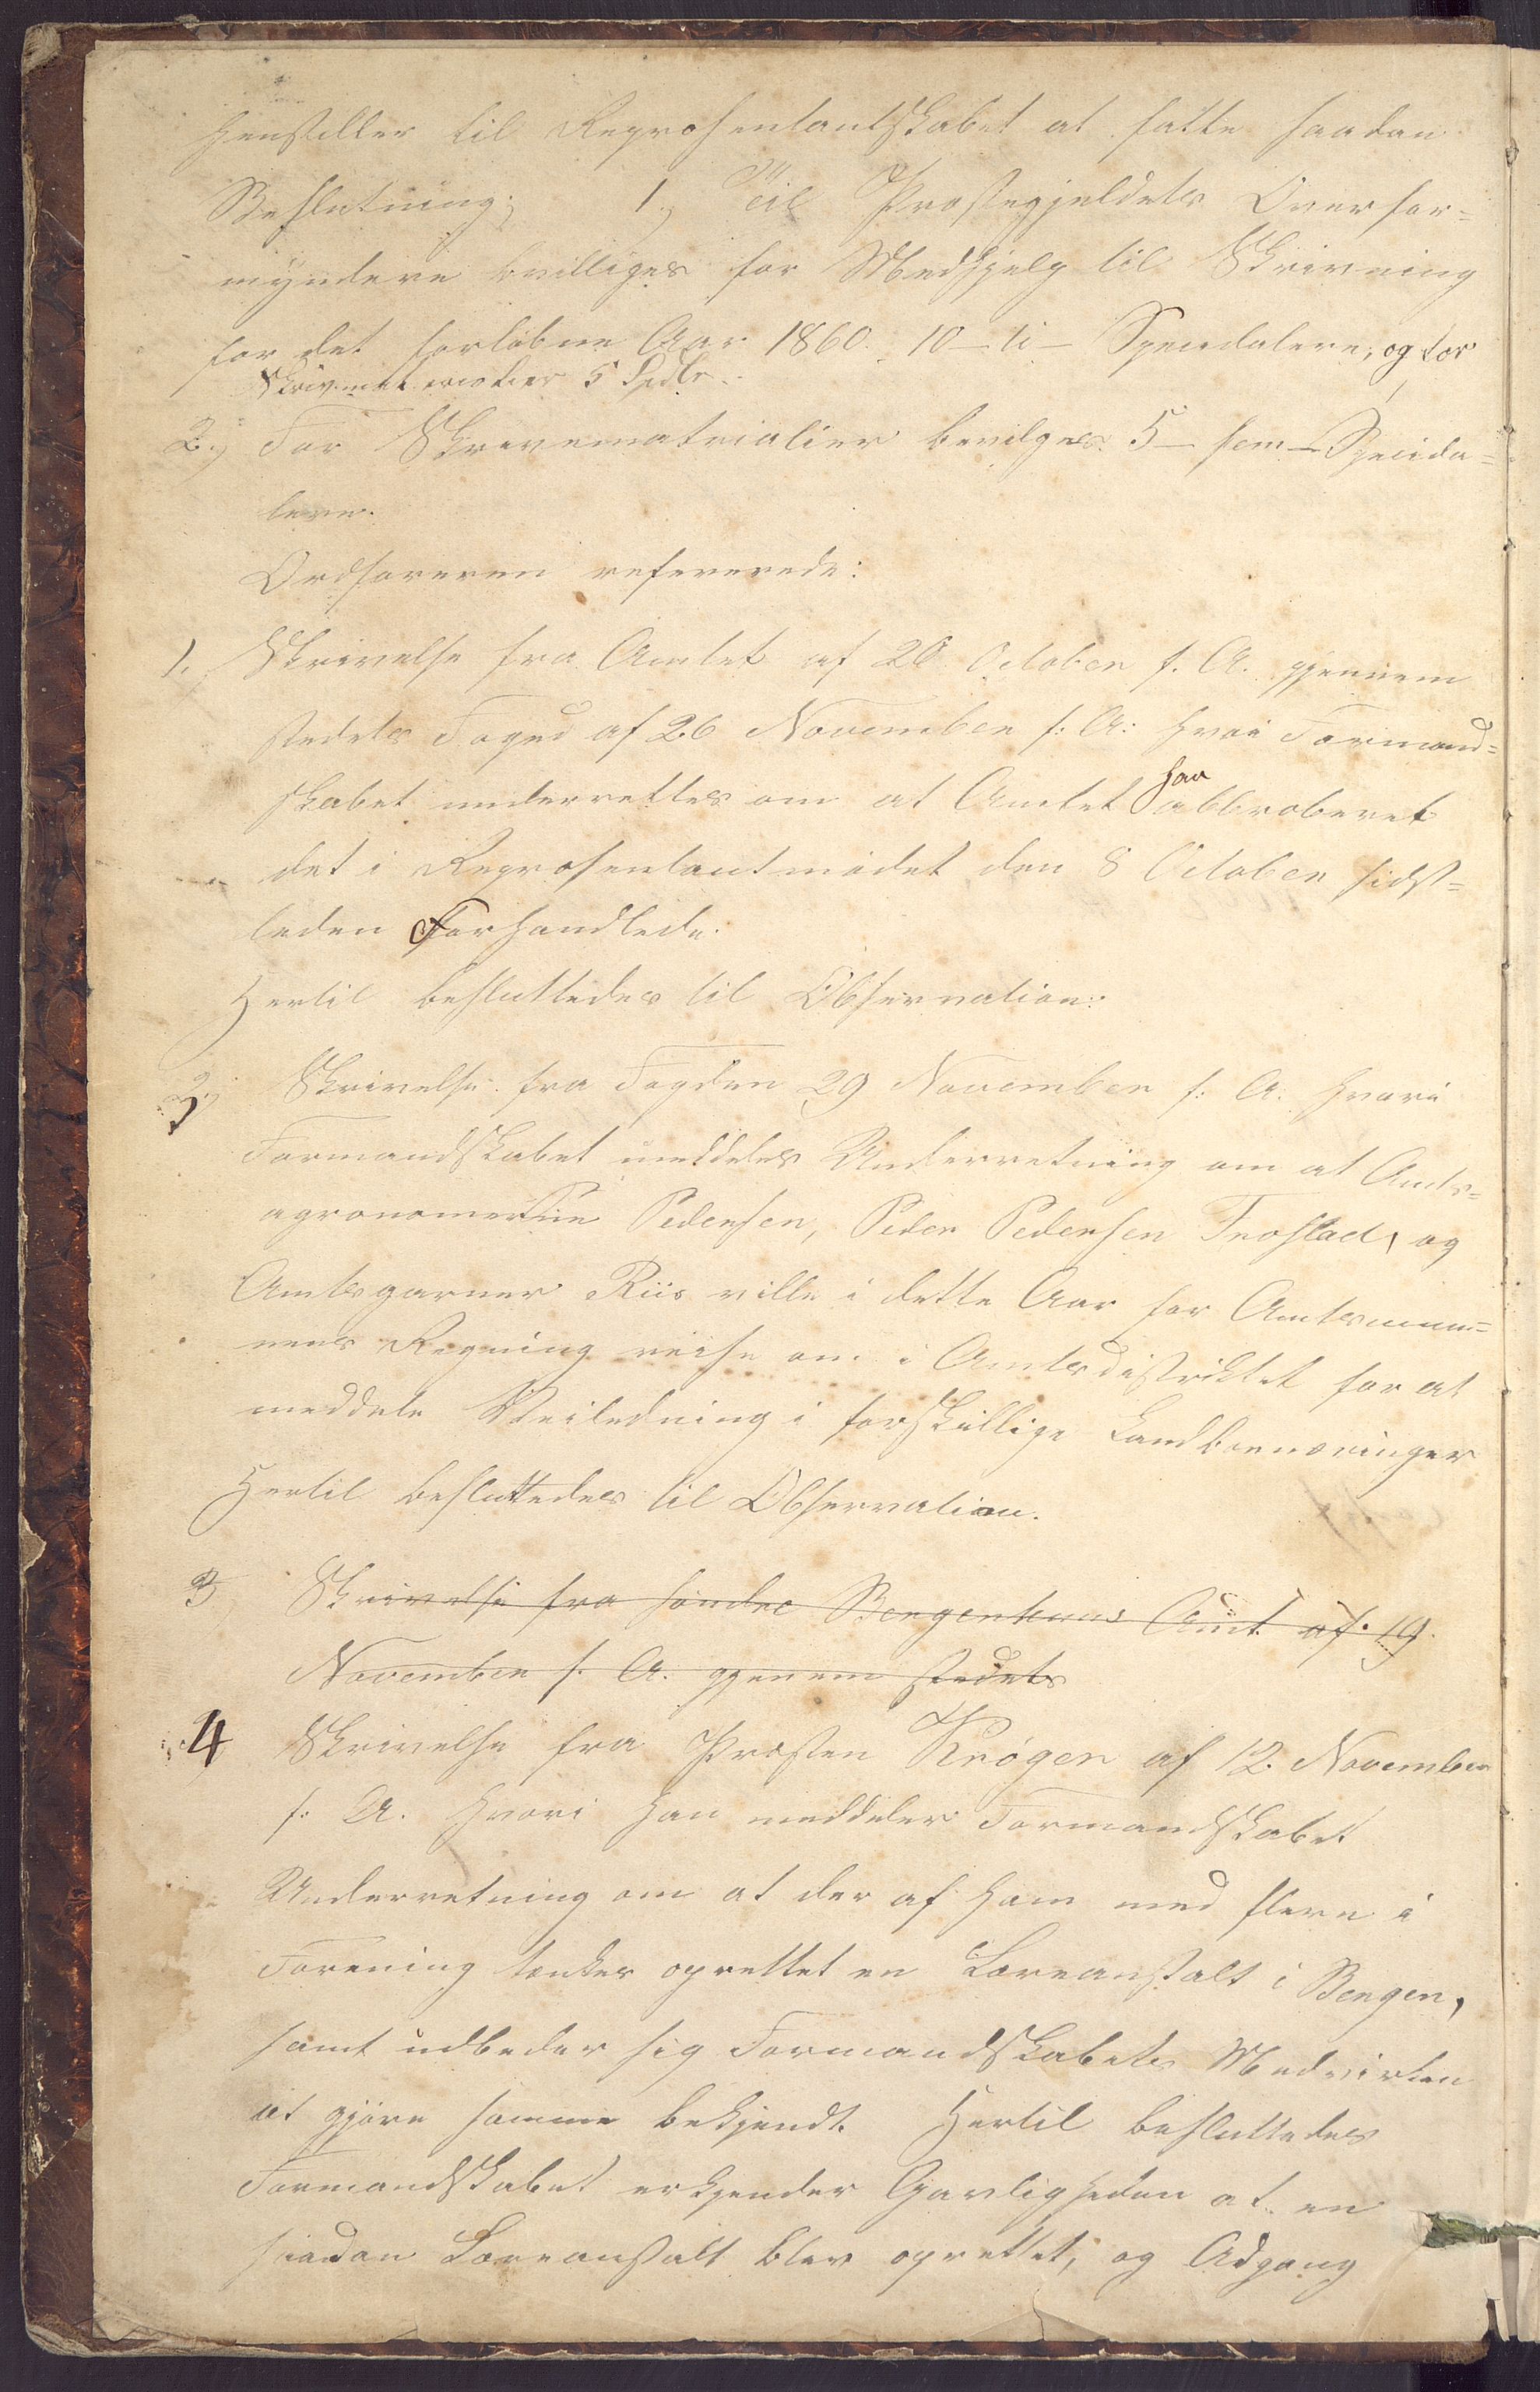 henstiller til Repræsentantskabet at fatte saadan
Beslutning; 1, Til Præstegjeldets Overfor=
myndere bvilliges for Medhjelp til Skrivning
for det forløbne Aar 1860. 10 – ti – Speciedalere, og for
Skrivmat. 5 Spdlr.
2, For Skrevematrialier bevilges 5 – fem – Specida=
lere.
Ordføreren refererede:
1, Skrivelse fra Amtet af 20 October f. A. gjennem
stedets Foged af 26 November f: A: hvori Formand=
skabet underrettes om at Amtet har abbroberet
det i Repræsentantmødet den 8 October sidst=
leden Forhandlede.
Hertil besluttedes til Observation.
2, Skrivelse fra Fogden 29 November f: A. hvori
Formandskabet meddeles Underretning om at Amts=
agronomerne Pedersen, Peder Pedersen Trostad, og
Amtsgarner Riis ville i dette Aar for Amtscommu=
nens Regning reise om i Amtsdistriktet for at
meddele Veiledning i forskjellige Landbrenæringer
Hertil besluttedes til Observation.
3 Skrivelse fra søndre Bergenhuus Amt af 19.
November f. A. gjenem stedets
4 Skrivelse fra Præsten Krøger af 12. November
f: A. hvori han meddeler Formandskabet
Underretning om at der af ham med flere i
Forening tænkes oprettet en Læreanstalt i Bergen,
samt udbeder sig Formandskabets Medvirken
at gjøre samme bekjendt. Hertil besluttedes
Formandskabet erkjender Gavligheden at en
saadan Læreanstalt blev oprettet, og Adgang